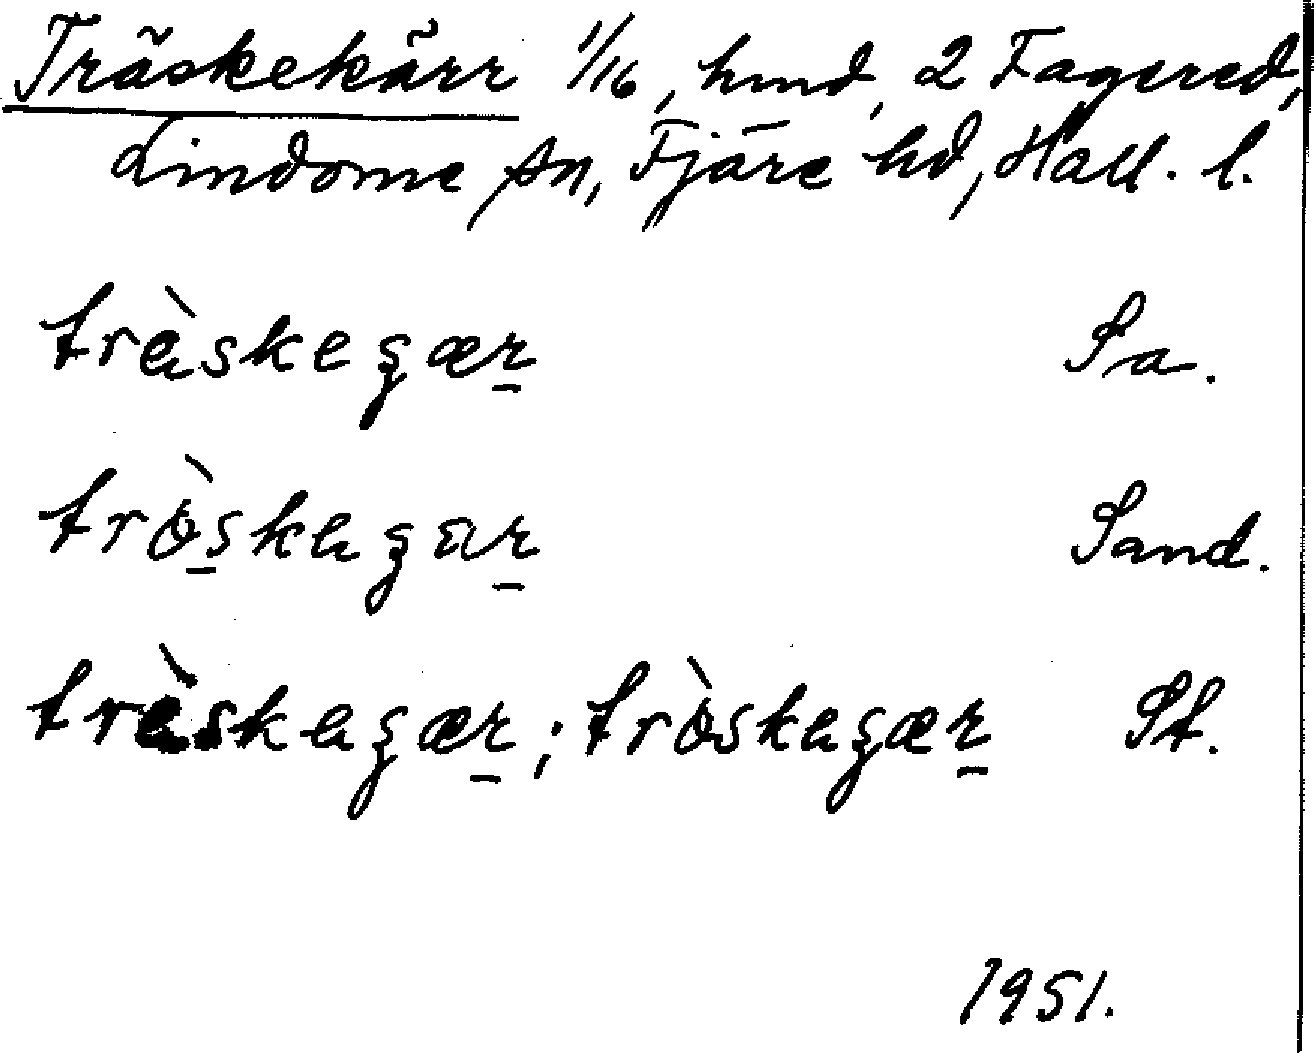 Träskekärr 1/16, hmd, 2 Fagered,
Lindome sn, Fjäre hd, Hall. l.
trèskeʒær Sa.
tròskeʒær Sand.
trèskeʒær; tròskeʒær St.
1951.